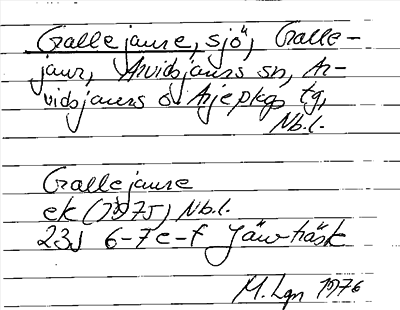 Gallejaure, sjö, Galle-
jaur, Arvidsjaurs sn, Ar-
vidsjaurs o Arjeplogs tg,
Nb.l.
Gallejaure
ek (1975) Nb.l.
23J 6-7e-f Jäurträsk
M. Lgn 1976